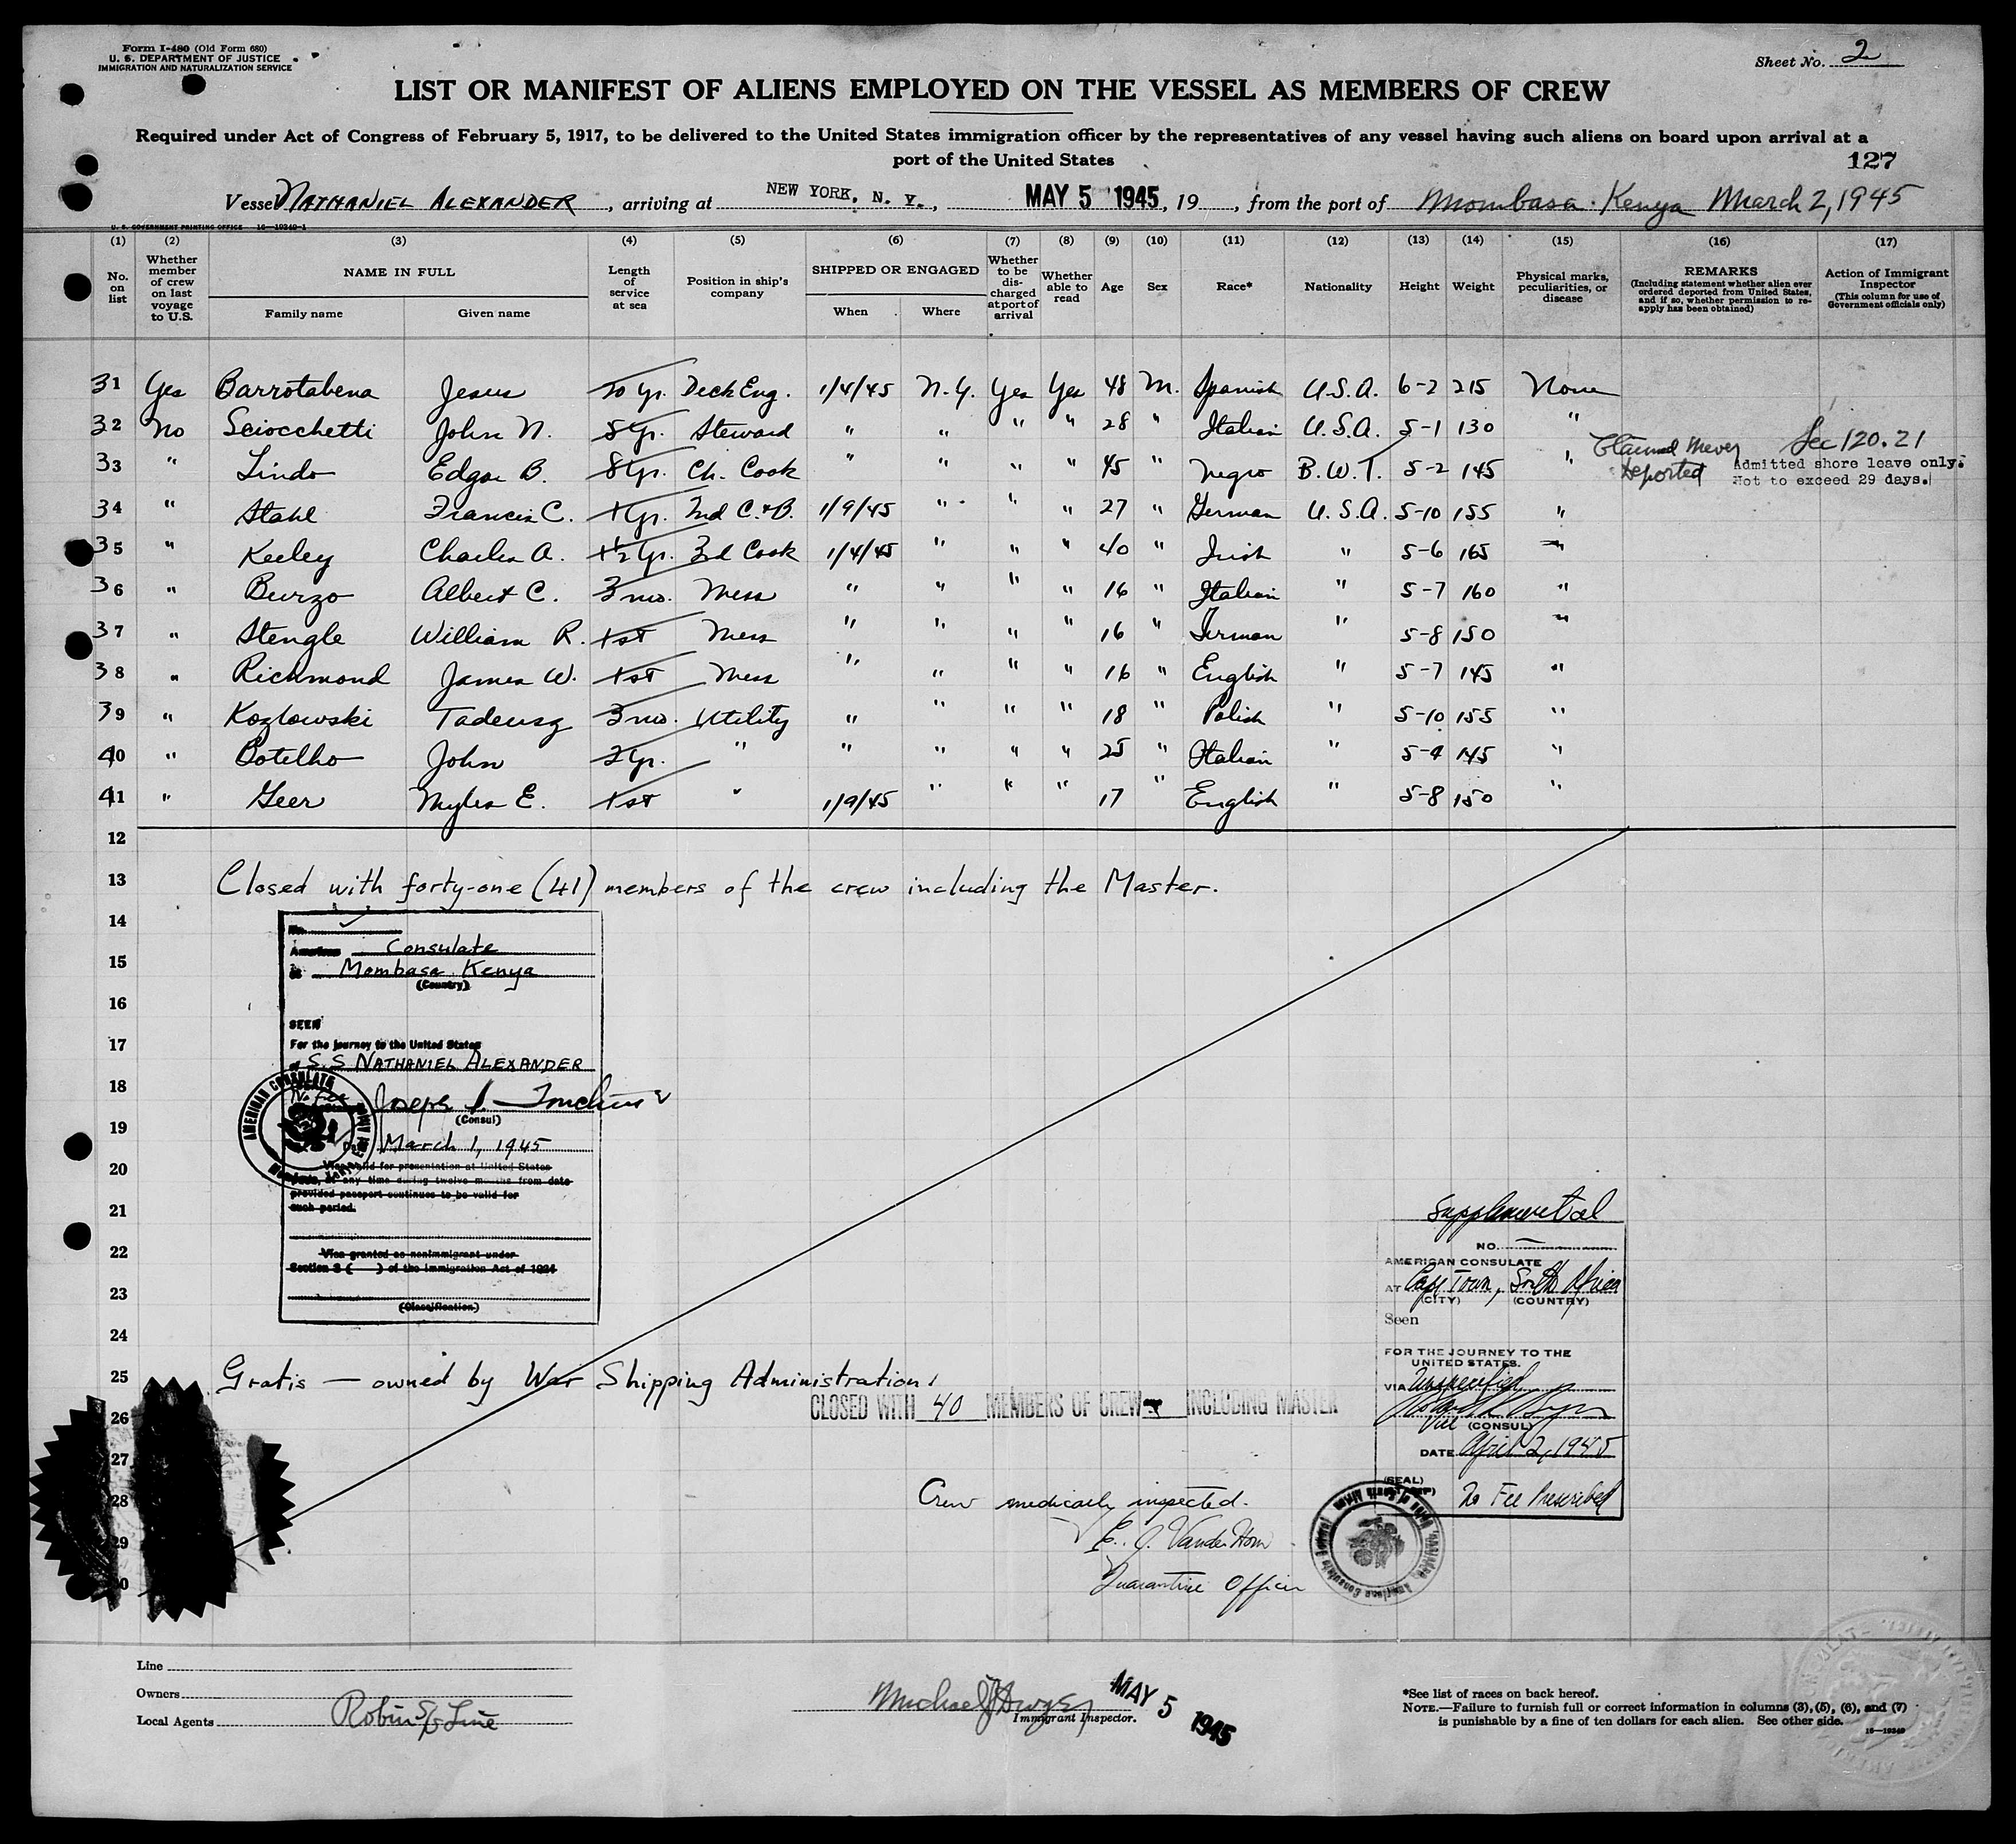 Form I-480 (Old Form 680)
U. S. DEPARTMENT OF JUSTICE
IMMIGRATION AND NATURALIZATION SERVICE
Sheet No. 2
LIST OR MANIFEST OF ALIENS EMPLOYED ON THE VESSEL AS MEMBERS OF CREW
Required under Act of Congress of February 5, 1917, to be delivered to the United States immigration officer by the representatives of any vessel having such aliens on board upon arrival at a
port of the United States
127
Vessel NATHANIEL ALEXANDER, arriving at NEW YORK, N. Y., MAY 5 1945, 19, from the port of Mombasa Kenya March 2, 1945
U. S. GOVERNMENT PRINTING OFFICE 16—19240-1
(1) (2) (3) (4) (5) (6) (7) (8) (9) (10) (11) (12) (13) (14) (15) (16) (17)
No. on list
Whether member of crew on last voyage to U.S.
NAME IN FULL
Family name Given name
Length of service at sea
Position in ship's company
SHIPPED OR ENGAGED
When Where
Whether to be discharged at port of arrival
Whether able to read
Age
Sex
Race*
Nationality
Height
Weight
Physical marks, peculiarities, or disease
REMARKS
(Including statement whether alien ever ordered deported from United States, and if so, whether permission to re-apply has been obtained)
Action of Immigrant Inspector
(This column for use of Government officials only)
31 Yes Barrotabena Jesus 20 Yr. Deck Eng. 1/4/45 N.Y. Yes Yes 48 M. Spanish U.S.A. 6-2 215 None
32 No Sciocchetti John N. 8 Yr. Steward " " " " 28 " Italian U.S.A. 5-1 130 "
33 " Lindo Edgar B. 8 Yr. Ch. Cook " " " " 45 " Negro B.W.I. 5-2 145 " Claimed Never Deported Sec 120.21
Admitted shore leave only.
Not to exceed 29 days.
34 " Stahl Francis C. 1 Yr. 2nd C.&B. 1/9/45 " " " 27 " German U.S.A. 5-10 155 "
35 " Keeley Charles A. 1½ Yr. 3rd Cook 1/4/45 " " " 40 " Irish " 5-6 165 "
36 " Burzo Albert C. 3 mo. Mess " " " " 16 " Italian " 5-7 160 "
37 " Stengle William R. 1st Mess " " " " 16 " German " 5-8 150 "
38 " Richmond James W. 1st Mess " " " " 16 " English " 5-7 145 "
39 " Kozlowski Tadeusz 3 mo. Utility " " " " 18 " Polish " 5-10 155 "
40 " Botelho John 2 Yr. " " " " " 25 " Italian " 5-4 145 "
41 " Geer Myles E. 1st " 1/9/45 " " " 17 " English " 5-8 150 "
12
13 Closed with forty-one (41) members of the crew including the Master.
14
15
16
17
18
19
20
21
22
23
24
25 Gratis — owned by War Shipping Administration.
26
27
28
29
30
No.
American Consulate
at Mombasa Kenya
(Country)
SEEN
For the journey to the United States
of S.S NATHANIEL ALEXANDER
No Fee
(Consul)
Date March 1, 1945
Visa valid for presentation at United States
at any time during twelve months from date
provided passport continues to be valid for
such period.
Visa granted as nonimmigrant under
Section 3 ( ) of the Immigration Act of 1924
(Classification)
AMERICAN CONSULATE
CLOSED WITH 40 MEMBERS OF CREW INCLUDING MASTER
Crew medically inspected.
E. J. VanderHorn
Quarantine Officer
Supplemental
NO.
AMERICAN CONSULATE
AT Cape Town, South Africa
(CITY) (COUNTRY)
Seen
FOR THE JOURNEY TO THE
UNITED STATES.
VIA Unspecified
Vice (CONSUL)
DATE April 2, 1945
(SEAL)
No Fee Prescribed
Line
Owners
Local Agents Robin SS Line
Immigrant Inspector.
MAY 5 1945
*See list of races on back hereof.
NOTE.—Failure to furnish full or correct information in columns (3), (5), (6), and (7)
is punishable by a fine of ten dollars for each alien. See other side.
16—19240